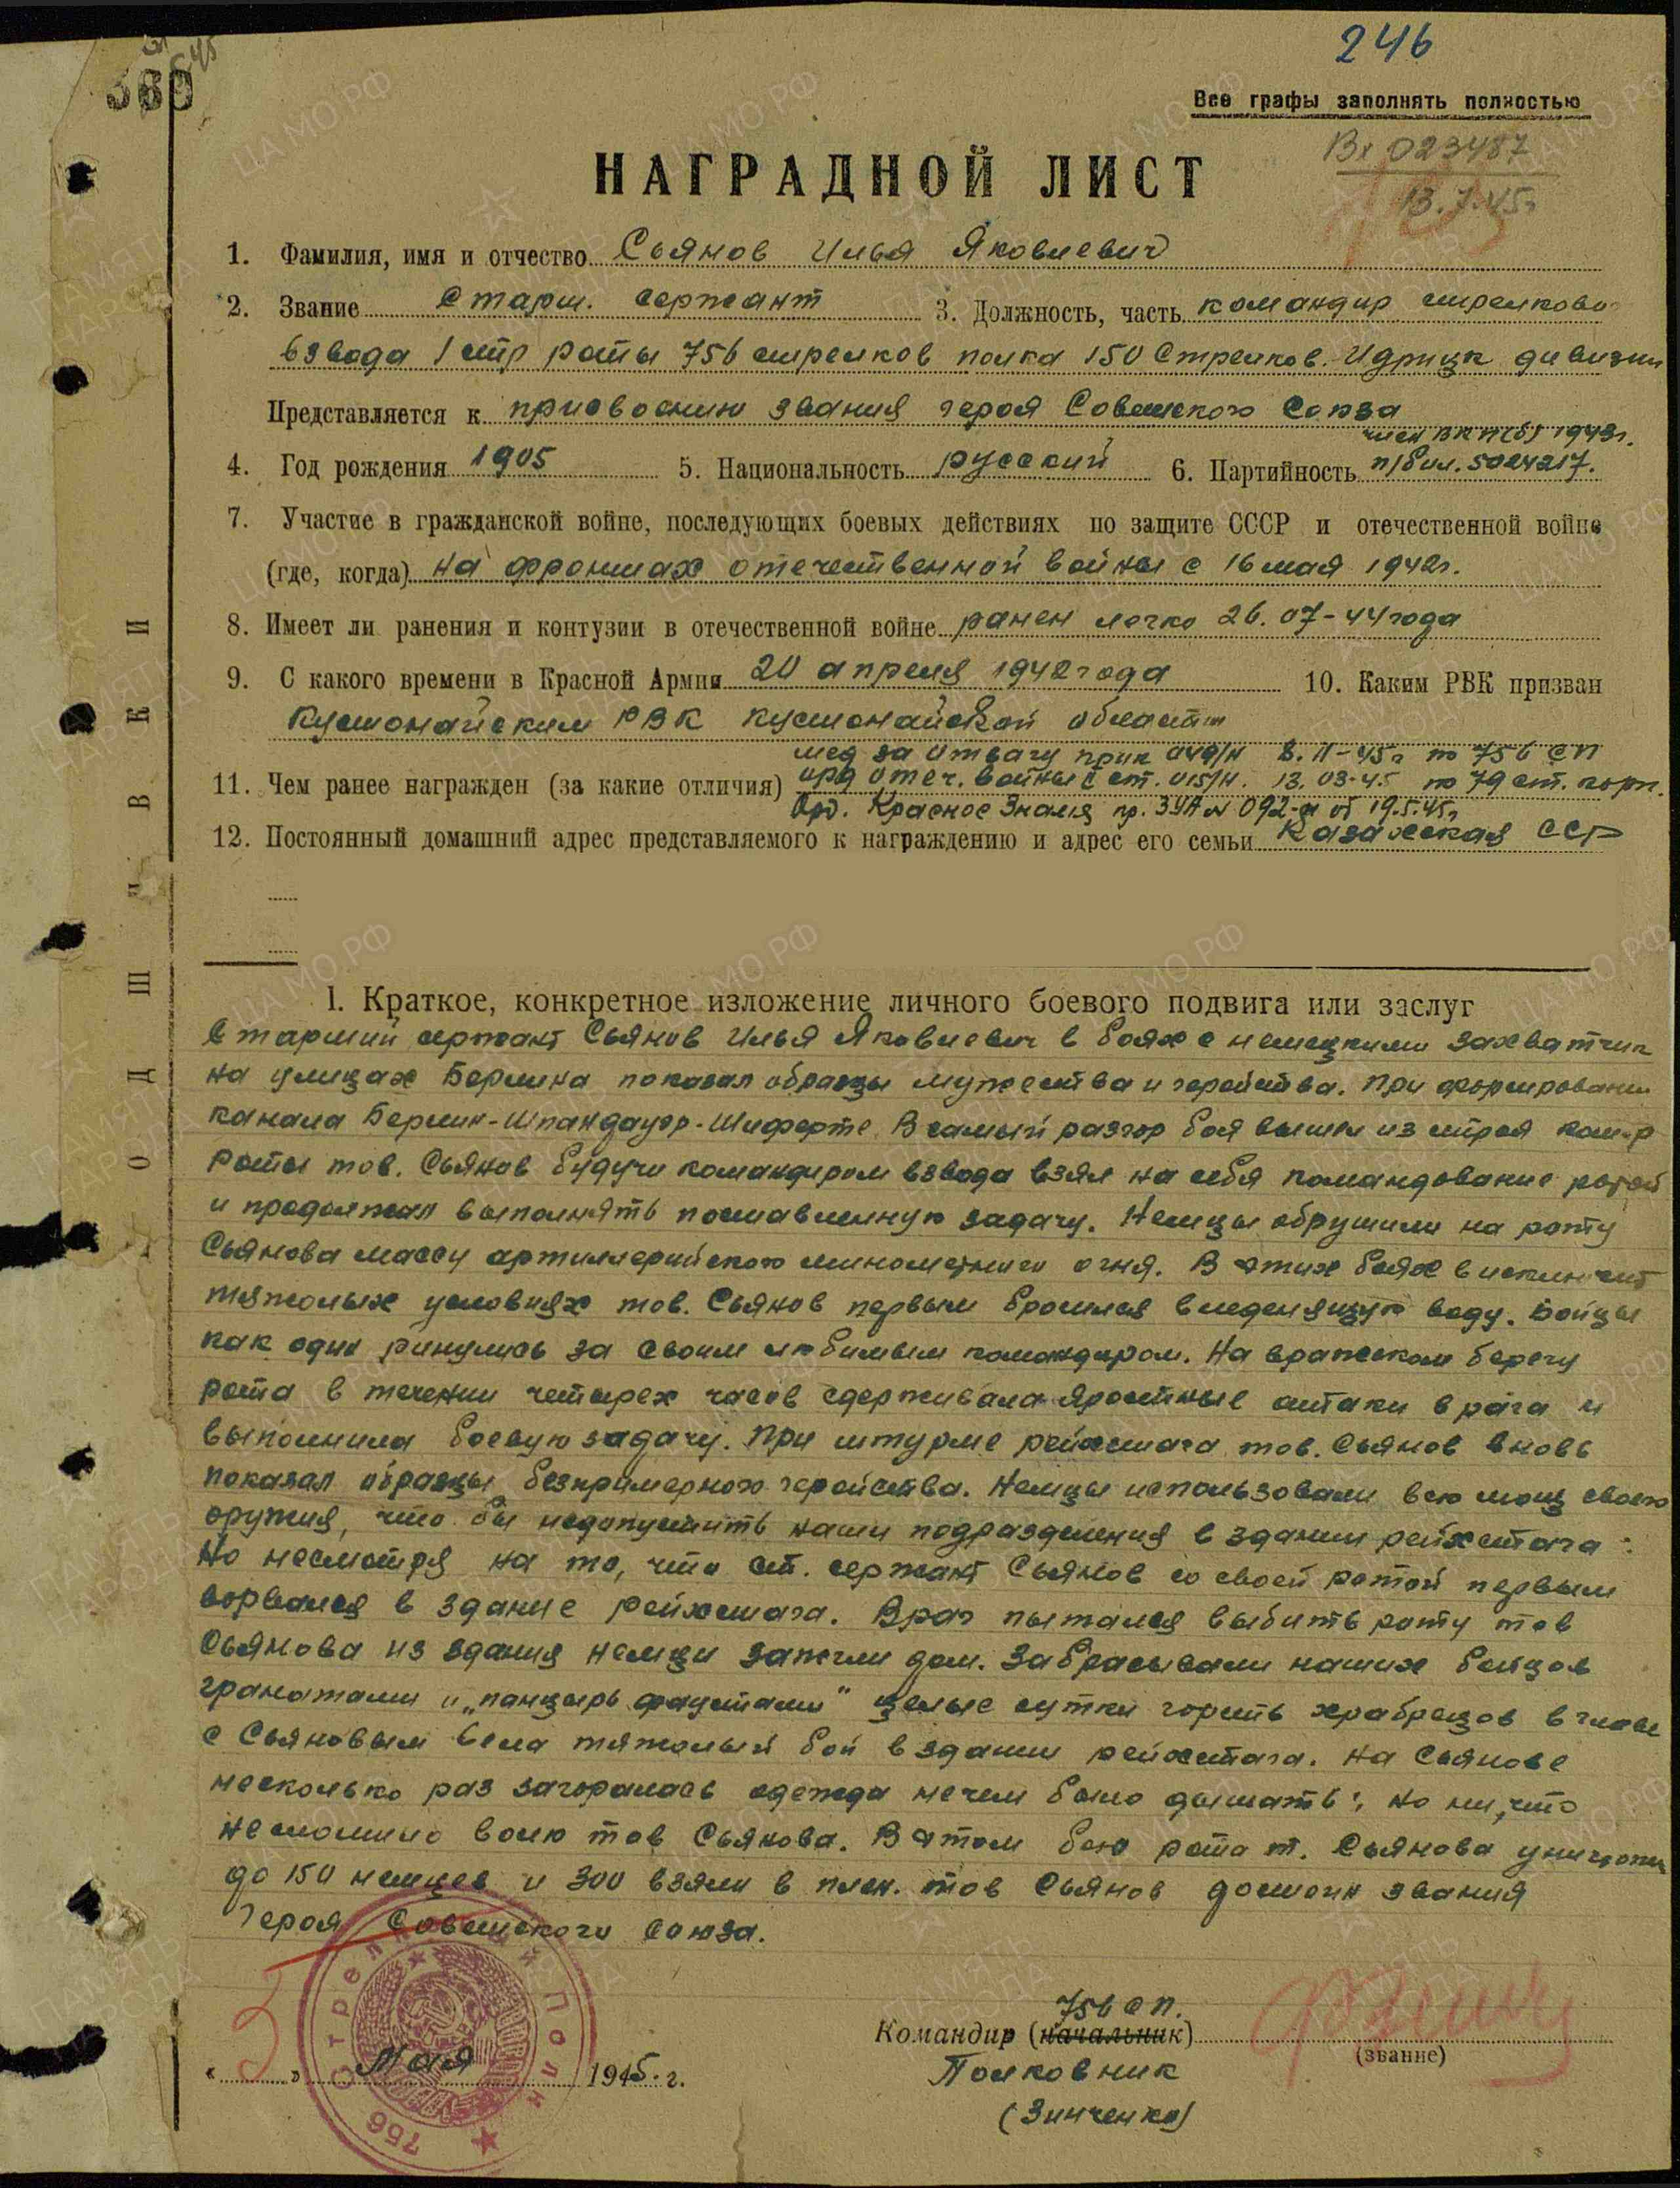 246
360
Все графы заполнять полностью
Вх 023487
13.7.45г
НАГРАДНОЙ ЛИСТ
1. Фамилия, имя и отчество Сьянов Илья Яковлевич
2. Звание Старш. сержант 3. Должность, часть командир стрелково
взвода 1 стр роты 756 стрелков полка 150 Стрелков. Идрицк дивизии
Представляется к присвоению звания героя Советского Союза
член ВКП(б) 1943г.
4. Год рождения 1905 5. Национальность русский 6. Партийность п/бил. 5024217.
7. Участие в гражданской войне, последующих боевых действиях по защите СССР и отечественной войне
(где, когда) на фронтах отечественной войны с 16 мая 1942г.
8. Имеет ли ранения и контузии в отечественной войне ранен легко 26.07-44 года
9. С какого времени в Красной Армии 20 апреля 1942 года 10. Каким РВК призван
Кустонайским РВК Кустонайской области
мед за Отвагу прик 049/н 8.II-45г по 756 СП
11. Чем ранее награжден (за какие отличия) орд Отеч. Войны II ст. 015/н. 13.03-45 по 79 ст. корп.
Орд. Красное Знамя пр. ЗУА № 092-н от 19.5.45г
12. Постоянный домашний адрес представляемого к награждению и адрес его семьи Казахская ССР
ПОДШИВКИ
1. Краткое, конкретное изложение личного боевого подвига или заслуг
Старший сержант Сьянов Илья Яковлевич в боях с немецкими захватчик
на улицах Берлина показал образцы мужества и геройства. При форсировании
канала Берлин-Шпандауер-Шиферте. В самый разгар боя вышел из строя ком-р
роты тов. Сьянов будучи командиром взвода взял на себя командование ротой
и продолжал выполнять поставленную задачу. Немцы обрушили на роту
Сьянова массу артиллерийского минометного огня. В этих боях в исключит
тяжолых условиях тов. Сьянов первым бросился в леденящую воду. Бойцы
как один ринулись за своим любимым командиром. На вражеском берегу
рота в течении четырех часов сдерживала яростные атаки врага и
выполнила боевую задачу. При штурме рейхстага тов. Сьянов вновь
показал образцы безпримерного геройства. Немцы использовали всю мощ своего
оружия, что бы недопустить наши подразделения в здании рейхстага.
Но несмотря на то, что ст. сержант Сьянов со своей ротой первым
ворвался в здание рейхстага. Враг пытался выбить роту тов
Сьянова из здания немци зажгли дом. Забрасывали наших бойцов
гранатами и „панцырь фаустами" целые сутки горсть храбрецов в главе
с Сьяновым вела тяжолый бой в здании рейхстага. На Сьянове
несколько раз загоралась одежда нечем было дышать; но ни, что
несломило волю тов Сьянова. В этом бою рота т. Сьянова уничтожи
до 150 немцев и 300 взяли в плен. тов Сьянов достоин звания
Героя Советского Союза.
756 СП.
Командир (начальник)
(звание)
Полковник
(Зинченко)
«5» Мая 1945 г.
756 Стрелковый Полк